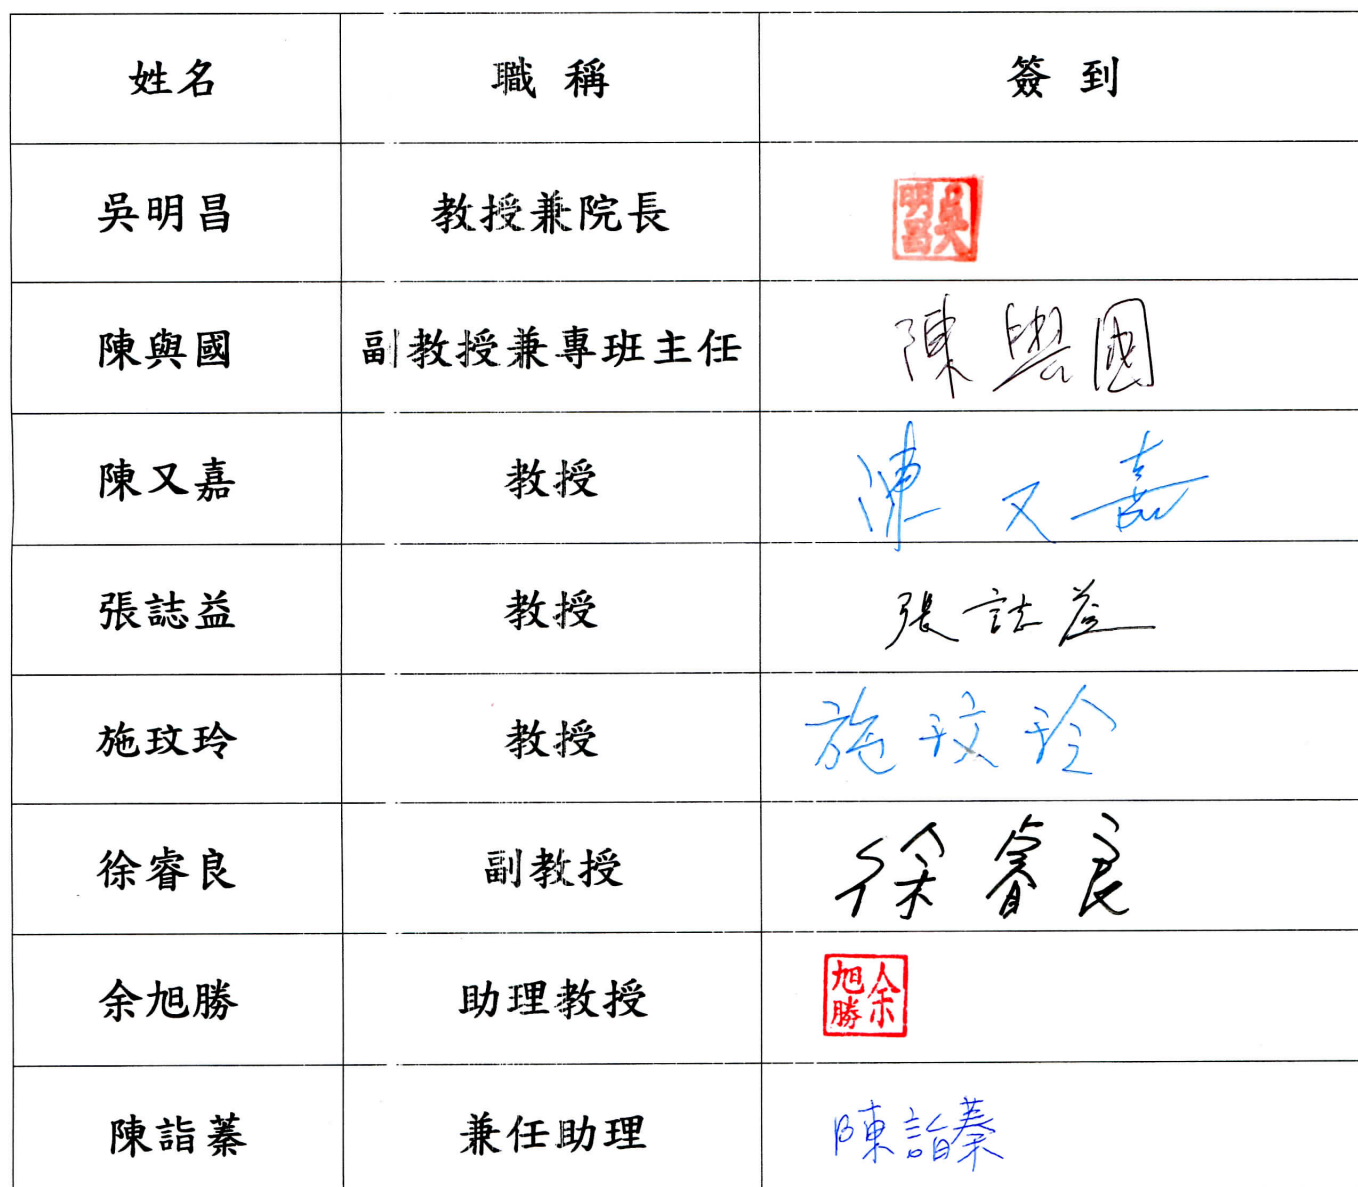 姓名 職稱 簽到
吳明昌 教授兼院長 吳明昌
陳與國 副教授兼專班主任 陳與國
陳又嘉 教授 陳又嘉
張誌益 教授 張誌益
施玟玲 教授 施玟玲
徐睿良 副教授 徐睿良
余旭勝 助理教授 余旭勝
陳詣蓁 兼任助理 陳詣蓁